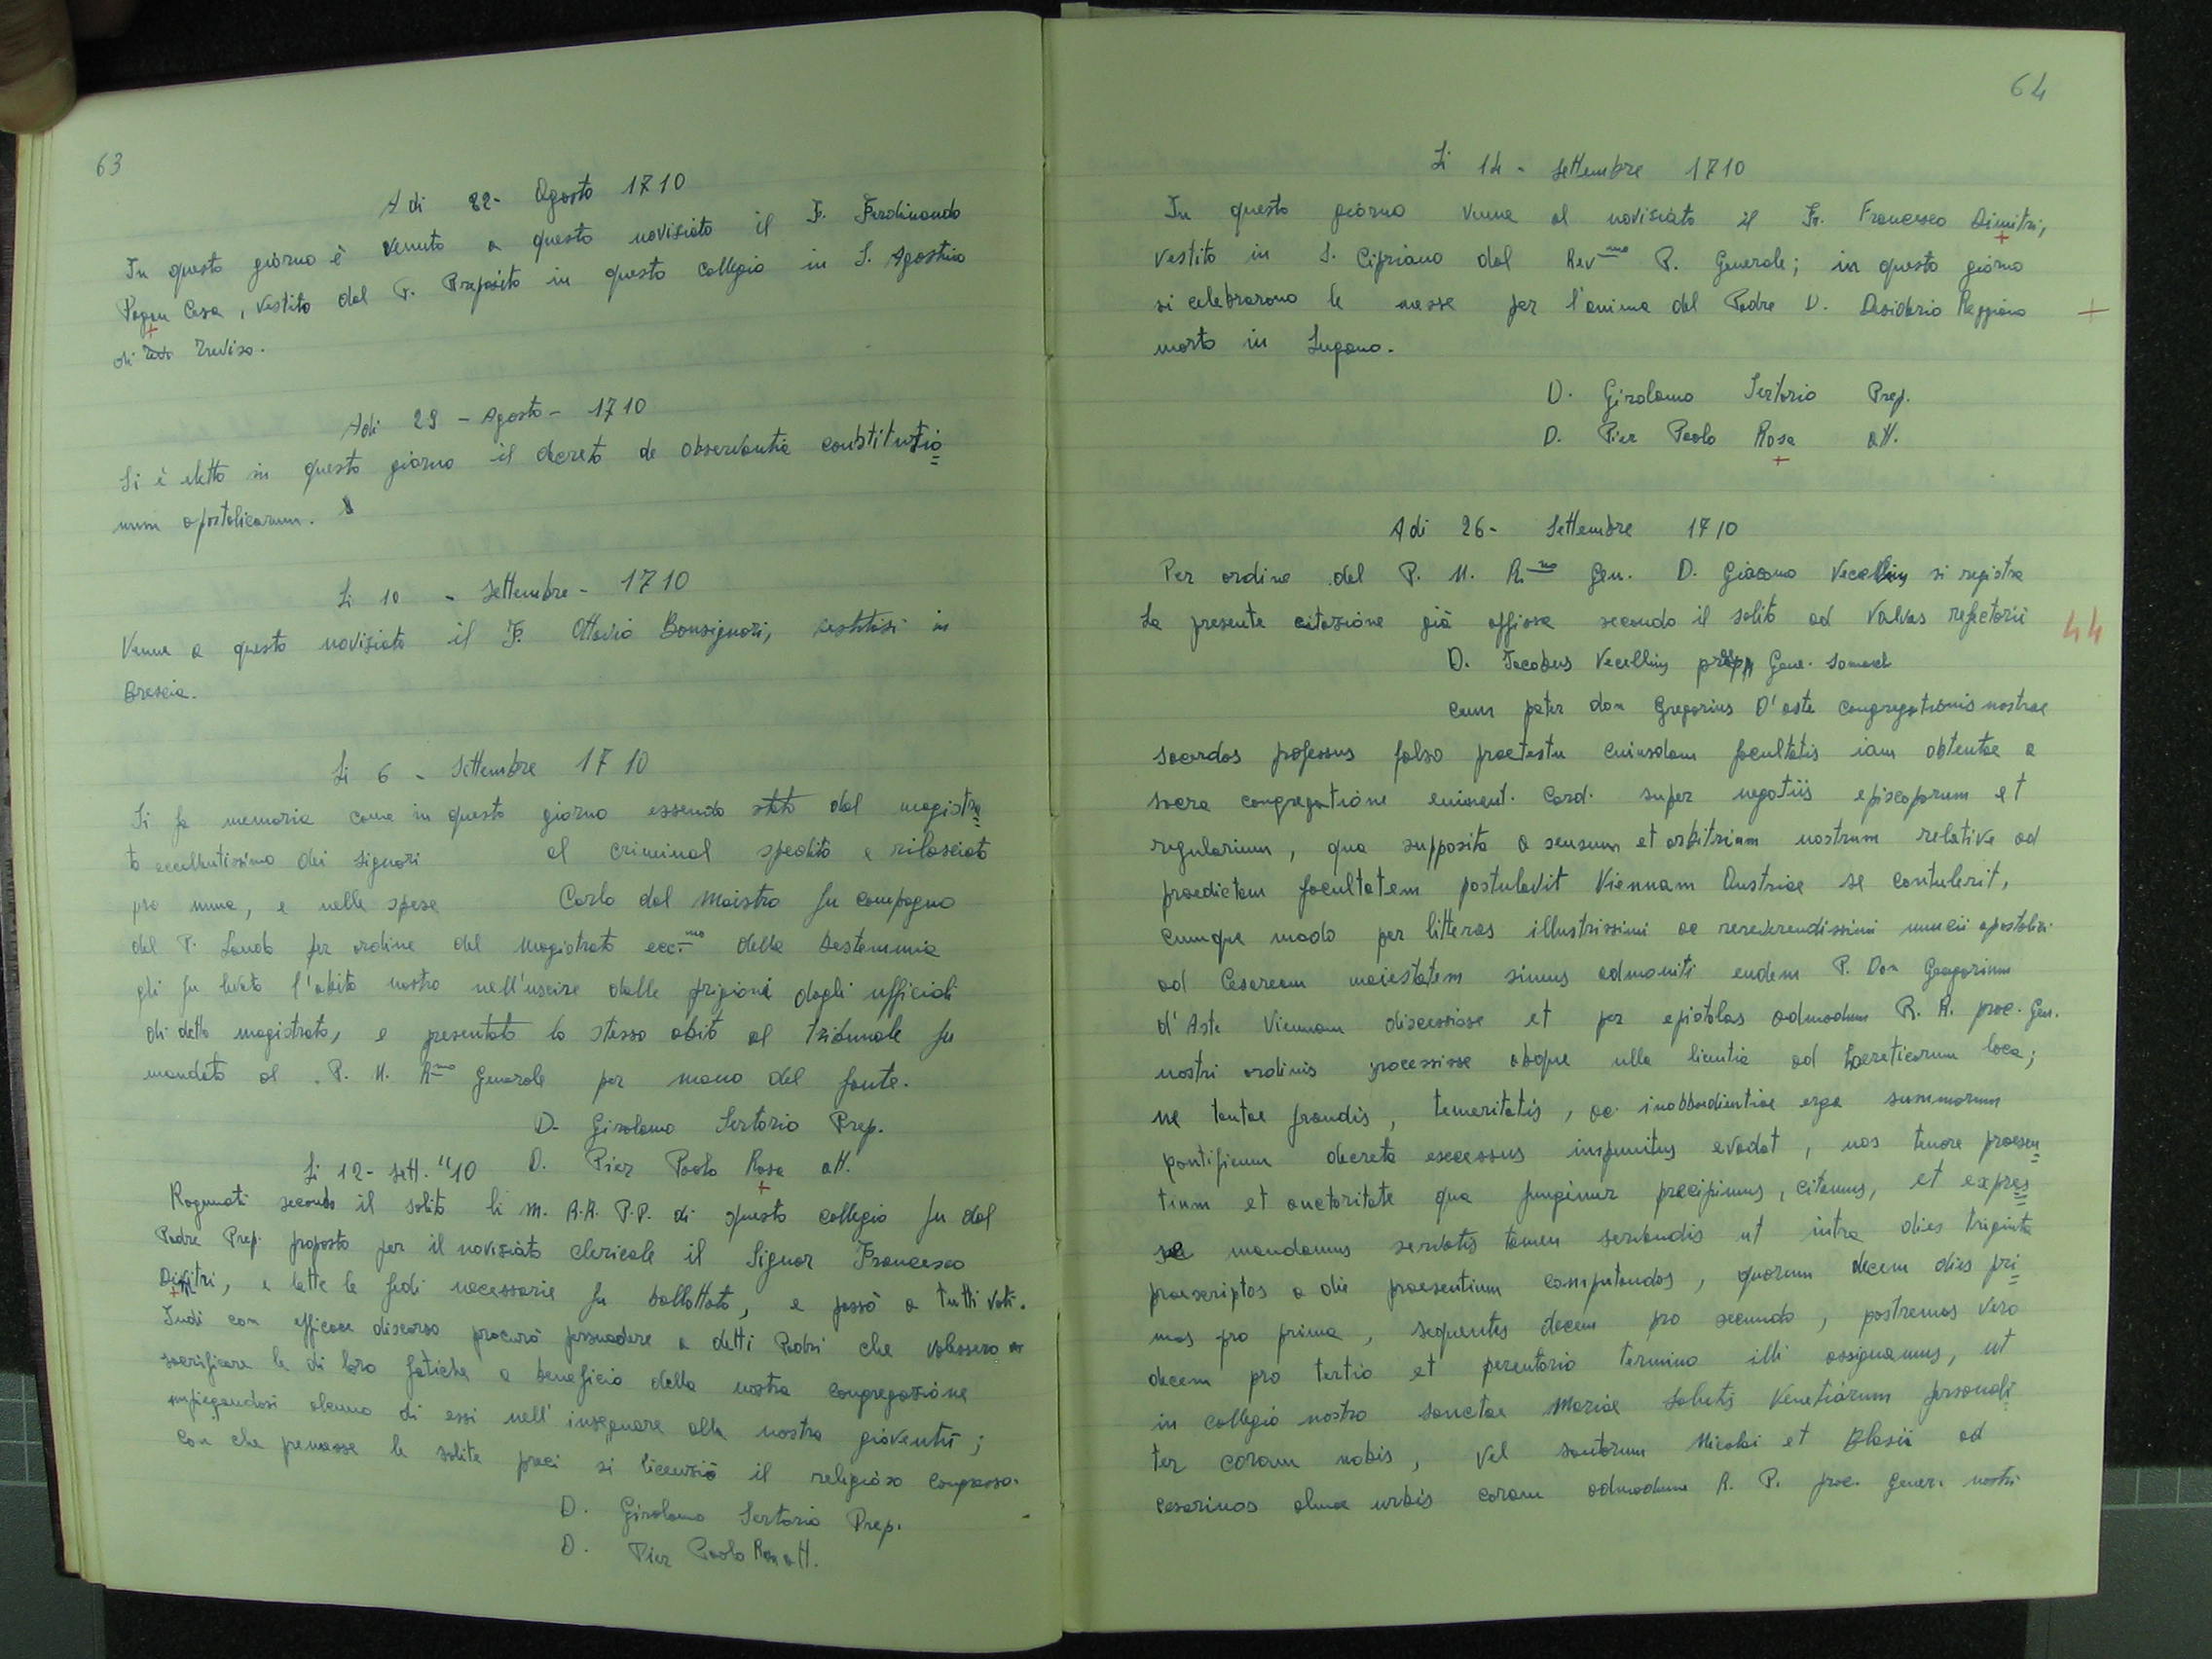 63
A di 22- Agosto 1710
In questo giorno è venuto a questo novisiato il F. Ferdinando
Pagan Cesa, vestito dal P. Preposito in questo collegio in S. Agostino
di Treviso.
Adi 29 - Agosto - 1710
Si è letto in questo giorno il decreto de observantia constitutio=
num apostolicarum.
Li 10 - Settembre - 1710
Venne a questo novisiato il F. Ottavio Bonsignori, vestitosi in
Brescia.
Li 6 - Settembre 1710
Si fa memoria come in questo giorno essendo stato dal magistra=
to eccellentissimo dei signori al criminal spedito e rilasciato
pro nunc, e nelle spese Carlo dal Maistro fu compagno
del P. Lando per ordine del Magistrato ecc.mo della bestemmia
gli fu levato l'abito nostro nell'uscire dalle prigioni dagli ufficiali
di detto magistrato, e presentato lo stesso abito al tribunale fu
mandato al P. M. R.mo Generale per mano del fante.
D. Girolamo Sertorio Prep.
Li 12- Sett. "10 D. Pier Paolo Rosa att.
Ragunati secondo il solito li M. R.R. P.P. di questo collegio fu dal
Padre Prep. proposto per il novisiato clericale il Signor Francesco
Dimitri, e lette le fedi necessarie fu ballottato, e passò a tutti voti.
Indi con efficace discorso procurò persuadere a detti Padri che volessero
sacrificare le di loro fatiche a beneficio della nostra congregazione
impiegandosi alcuno di essi nell'insegnare alla nostra gioventù;
con che premesse le solite preci si licenziò il religioso congresso.
D. Girolamo Sertorio Prep.
D. Pier Paolo Rosa att.
64
Li 14 - Settembre 1710
In questo giorno venne al novisiato il Fr. Francesco Dimitri,
vestito in S. Cipriano dal Rev.mo P. Generale; in questo giorno
si celebrarono le messe per l'anima del Padre D. Desiderio Reggiano
morto in Lugano.
D. Girolamo Sertorio Prep.
D. Pier Paolo Rosa att.
Adi 26 - Settembre 1710
Per ordine del P. M. R.mo Gen. D. Giacomo Vecellius si registra
la presente citazione già affissa secondo il solito ad valvas refectorii
44
D. Jacobus Vecellius Gene. Somasch
Cum pater don Gregorius D'aste congregationis nostrae
sacerdos professus falso praetextu cuiusdam facultatis iam obtentae a
sacra congregatione eminent. Card. super negotiis episcoporum et
regularium, qua supposita a sensum et arbitrium nostrum relative ad
praedictam facultatem postulavit Viennam Austriae se contulerit,
cumque modo per litteras illustrissimi ac rereverendissimi nuncii apostolici
ad Cesaream maiestatem simus admoniti eundem P. Don Gregorium
d'Aste Viennam discessisse et per epistolas admodum R. R. proc. Gen.
nostri ordinis processisse absque ulla licentia ad haereticorum loca;
ne tantae fraudis, temeritatis, ac inobboedientiae erga summorum
pontificum decreta excessus inpunitus evadat, nos tenore praesen=
tium et auctoritate qua fungimur precipimus, citamus, et expres=
se mandamus servatis tamen servandis ut intra dies triginta
praescriptos a die praesentium computandos, quorum decem dies pri=
mos pro prima, sequentes decem pro secundo, postremos vero
decem pro tertio et perentorio termino illi assignamus, ut
in collegio nostro sanctae Mariae Salutis Venetiarum personali=
ter coram nobis, vel santorum Nicolai et Blasii ad
cesarinos almae urbis coram admodum R. P. proc. Gener. nostri